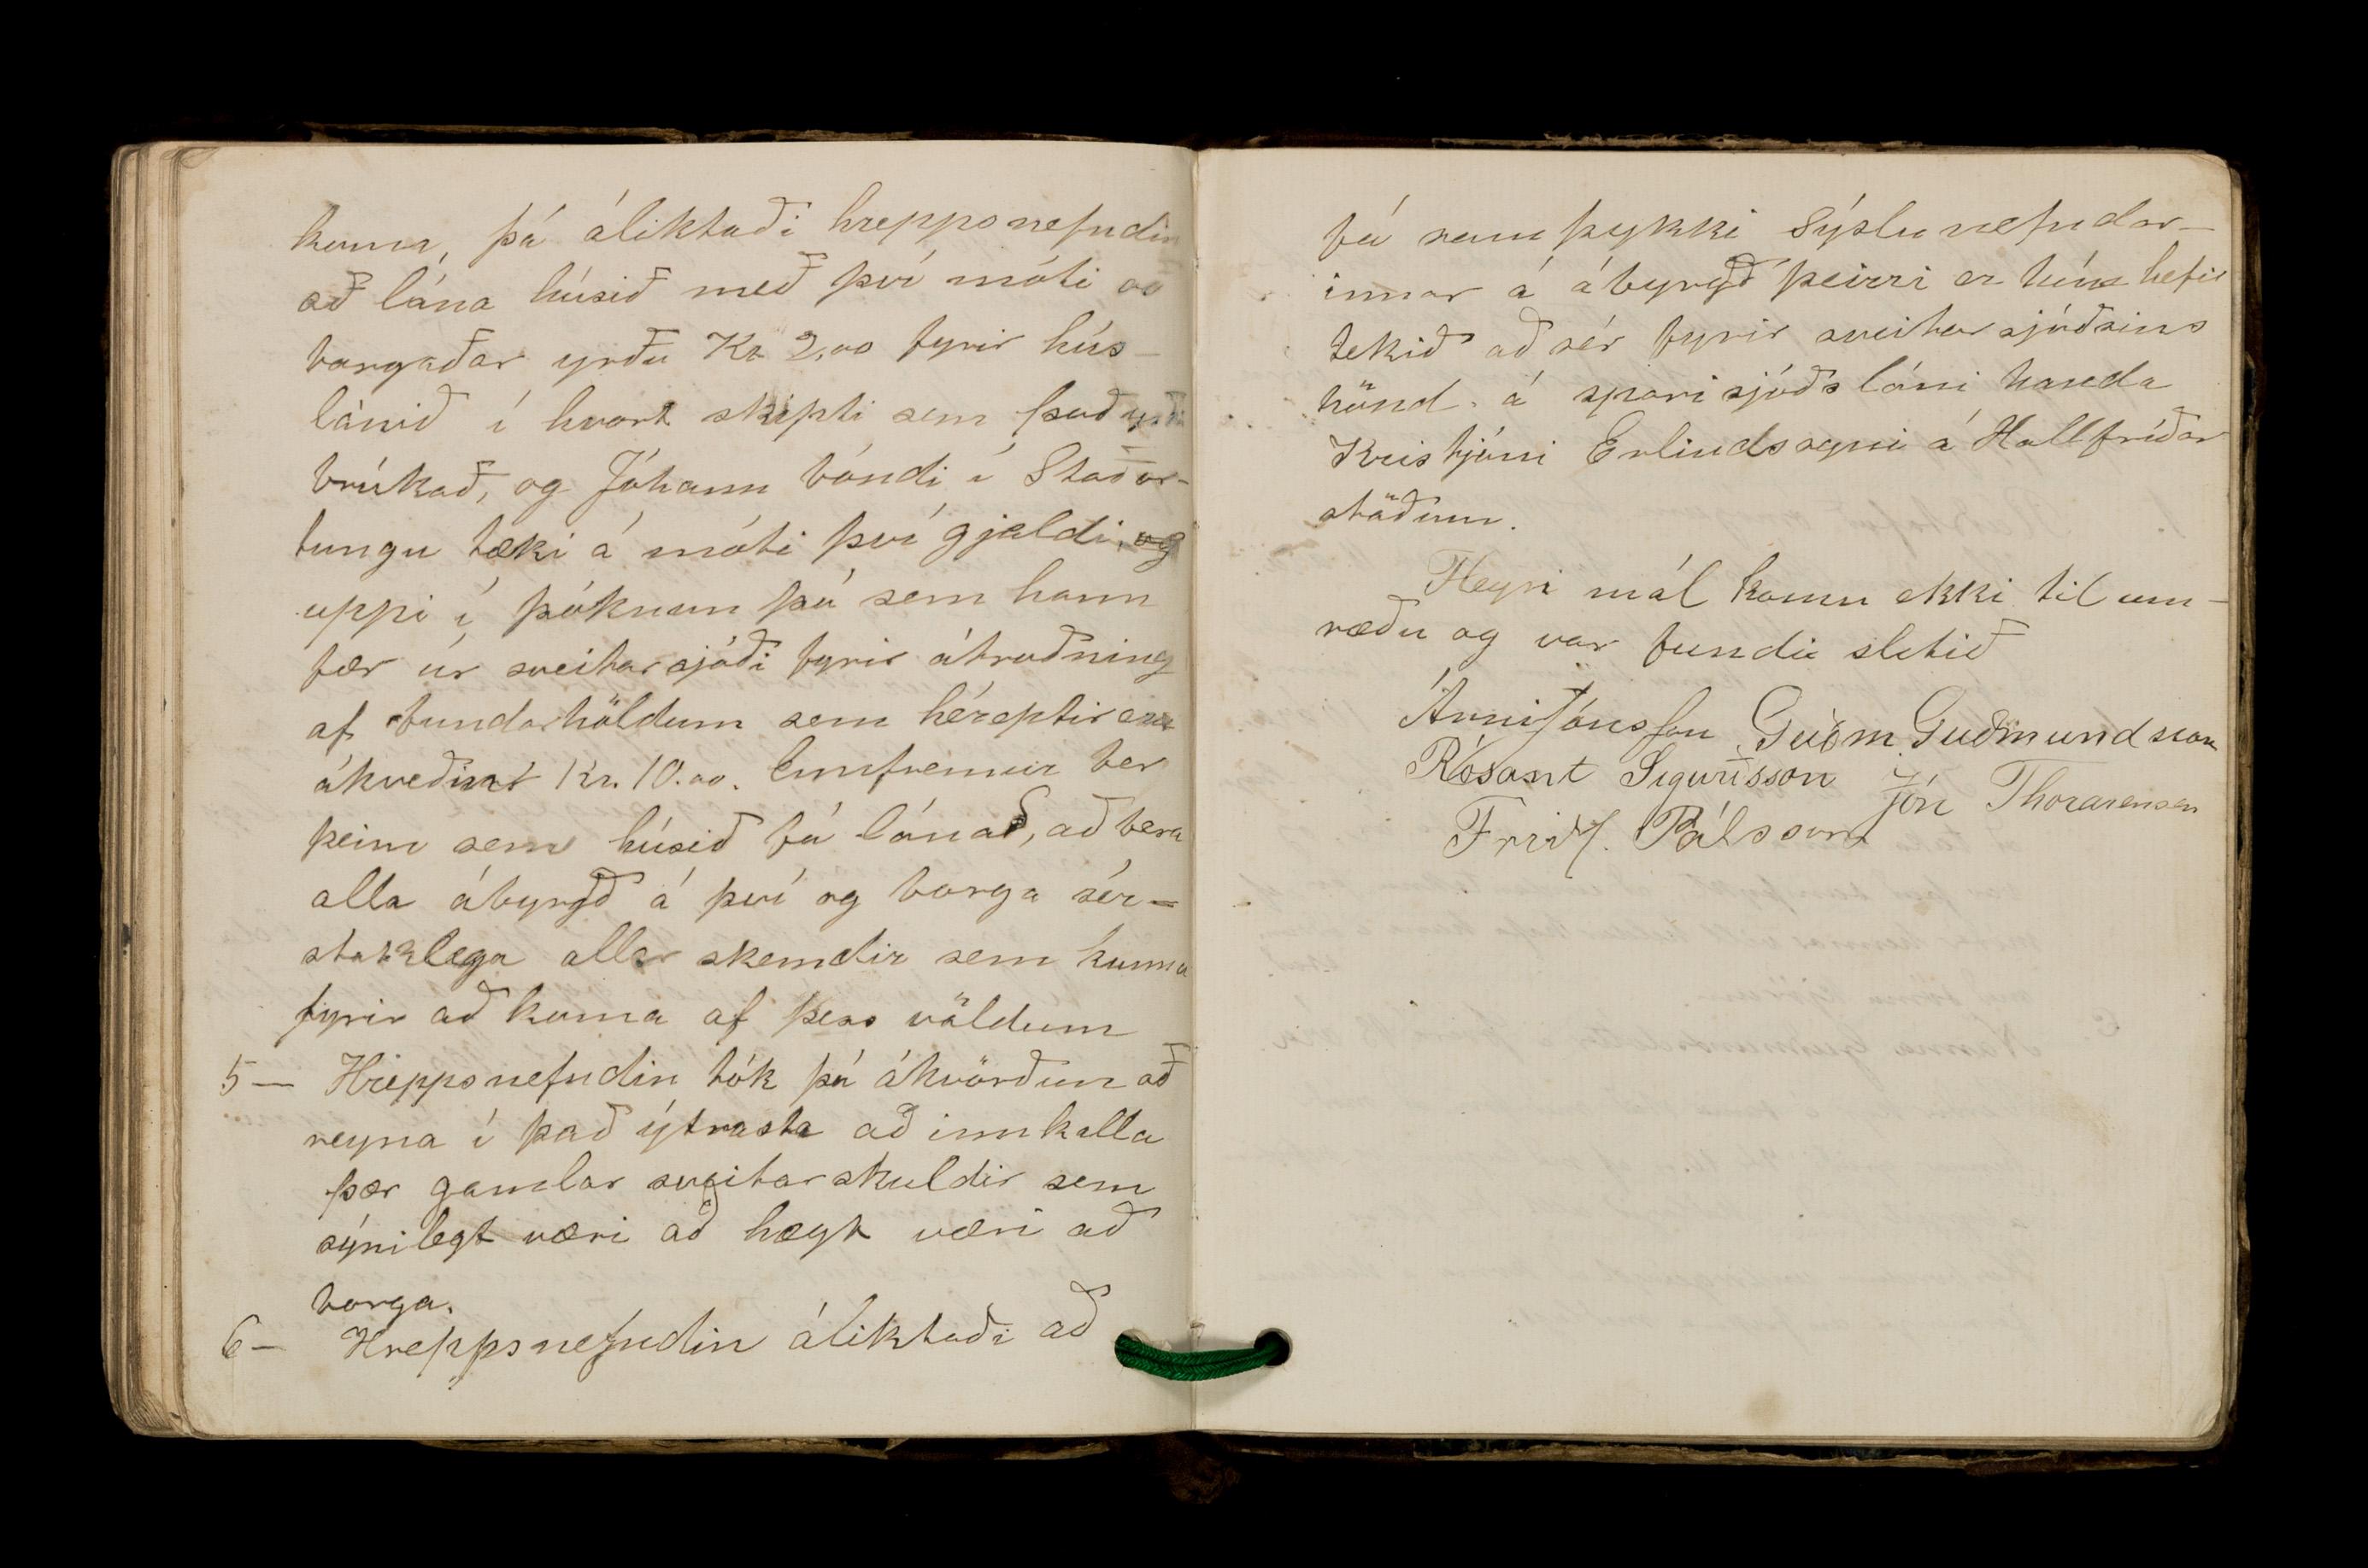 koma, þá áliktaði hreppsnefndin
að lána húsið með því móti að
borgaðar yrðu Kr 2,00 fyrir hús-
lánið í hvort skipti sem það yrði
brúkað, og Jóhann bóndi í Staðar-
tungu tæki á móti því gjaldi, og
uppi í þóknun þá sem hann
fær úr sveitarsjóði fyrir átroðning
af fundarhöldum sem héreptir eru
ákveðin Kr. 10.00. Ennfremur ber
þeim sem húsið fá lánað, að bera
alla ábyrgð á því og borga sér=
staklega allar skemdir sem kunna
fyrir að koma af þess völdum
5— Hreppsnefndin tók þá ákvörðun að
reyna í það ýtrasta að innkalla
þær gamlar sveitarskuldir sem
sýnilegt væri að hægt væri að
borga.
6— Hreppsnefndin áliktaði að
fá samþykki Sýslunefndar-
innar á ábyrgð þeirri er hún hefir
tekið að sér fyrir sveitarsjóðsins
hönd á sparisjóðsláni handa
Kristjáni Erlindssyni á Hallfríðar
stöðum.
Fleyri mál komu ekki til um-
ræðu og var fundi slitið
Árni Jónsson Guðm Guðmundsson
Rósant Sigurðsson Jón Thorarensen
Friðf. Pálsson